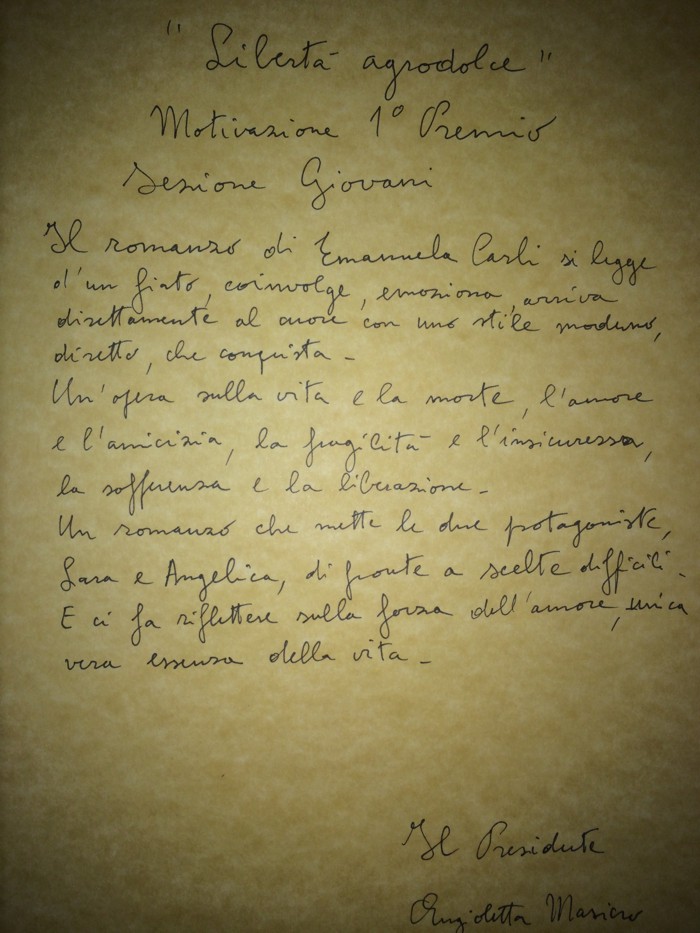 "Libertà agrodolce"
Motivazione 1° Premio
Sezione Giovani
Il romanzo di Emanuela Carli si legge
d'un fiato, coinvolge, emoziona, arriva
direttamente al cuore con uno stile moderno,
diretto, che conquista -
Un'opera sulla vita e la morte, l'amore
e l'amicizia, la fragilità e l'insicurezza,
la sofferenza e la liberazione -
Un romanzo che mette le due protagoniste,
Lara e Angelica, di fronte a scelte difficili.
E ci fa riflettere sulla forza dell'amore, unica
vera essenza della vita -
Il Presidente